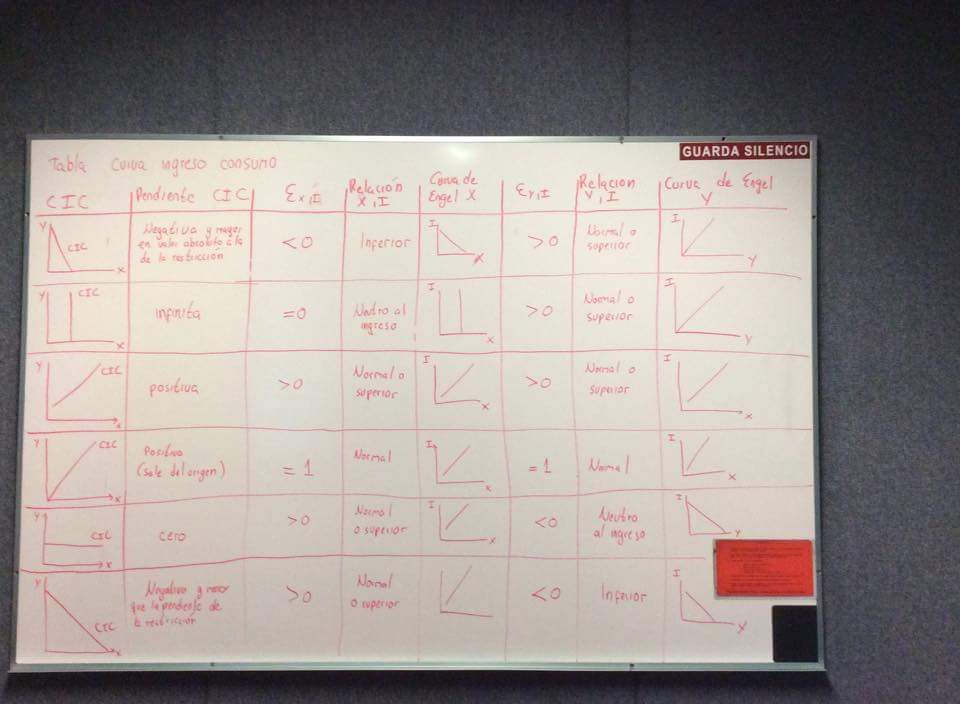 GUARDA SILENCIO
Tabla Curva ingreso consumo
CIC
Pendiente CIC
Ɛx,I
Relación
X,I
Curva de
Engel X
Ɛy,I
Relacion
Y,I
Curva de Engel
Y
Y
CIC
X
Negativa y mayor
en valor absoluto a la
de la restricción
<0
Inferior
I
X
>0
Normal o
superior
I
Y
Y
CIC
X
infinita
=0
Neutro al
ingreso
I
X
>0
Normal o
superior
I
Y
Y
CIC
x
positiva
>0
Normal o
superior
I
X
>0
Normal o
superior
I
X
Y
CIC
X
Positiva
(sale del origen)
=1
Normal
I
X
=1
Normal
I
X
Y
CIC
X
cero
>0
Normal
o superior
I
X
<0
Neutro
al ingreso
I
Y
Y
CIC
X
Negativa y menor
que la pendiente de
la restricción
>0
Normal
o superior
<0
Inferior
I
Y